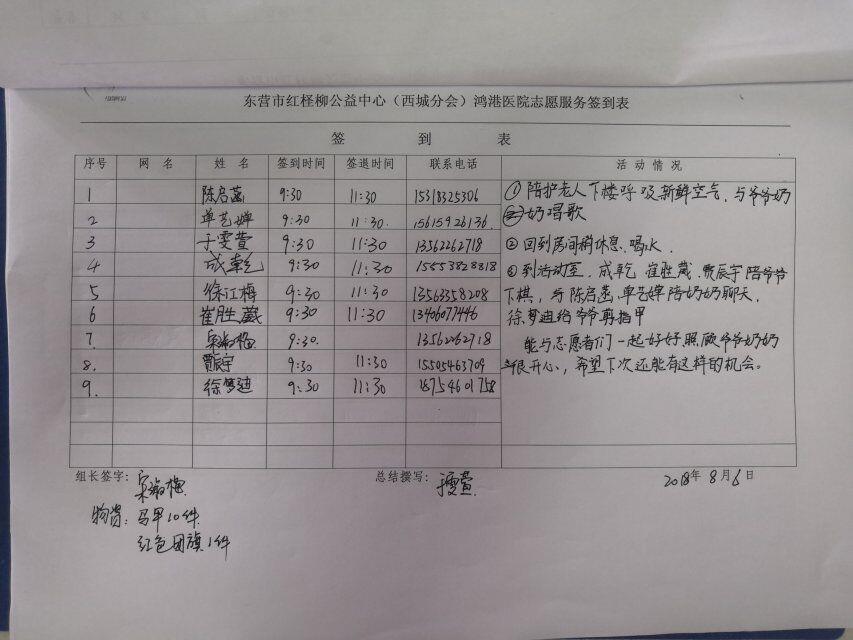 东营市红柽柳公益中心（西城分会）鸿港医院志愿服务签到表
签 到 表
序号 网 名 姓 名 签到时间 签退时间 联系电话 活 动 情 况
1 陈启菡 9:30 11:30 15318325306
2 单艺婵 9:30 11:30 15615926136
3 于雯萱 9:30 11:30 13562262718
4 成乾 9:30 11:30
5 徐江梅 9:30 11:30 13563358208
6 崔胜葳 9:30 11:30 13406077446
7. 9:30 13562262718
8. 贾宸宇 9:30 11:30 15505463709
9. 徐梦迪 9:30 11:30 18754601758
①陪护老人下楼呼吸新鲜空气，与爷爷奶
奶唱歌
②回到房间稍休息、喝水．
③到活动室，成乾 崔胜葳、贾宸宇陪爷爷
下棋，与陈启菡、单艺婵陪奶奶聊天，
徐梦迪给爷爷剪指甲
能与志愿者们一起好好照顾爷爷奶奶
很开心，希望下次还能有这样的机会。
组长签字： 总结撰写：于雯萱 2018年8月6日
物资：马甲10件
红色团旗1件